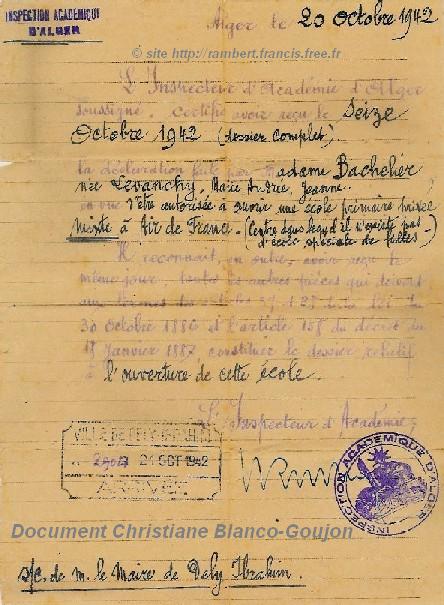 INSPECTION ACADEMIQUE
D'ALGER
Alger le 20 octobre 1942
© site http://rambert.francis.free.fr
L'Inspecteur d'Académie d'Alger
soussigné, certifie avoir reçu le Seize
Octobre 1942 (dossier complet)
la déclaration faite par Madame Bachelier
née Levanchy, Marie Andrée, Jeanne.
en vue d'être autorisée à ouvrir une école primaire privée
Mixte à Air de France. (Centre dans lequel il n'existe pas
d'école spéciale de filles)
Il reconnait, en outre, avoir reçu le
même jour, toutes les autres pièces qui doivent
aux termes des articles 37 et 38 de la Loi du
30 octobre 1886 et l'article 158 du décret du
18 Janvier 1887, constituer le dossier relatif
à l'ouverture de cette école.
L'Inspecteur d'Académie,
VILLE DE DELY-IBRAHIM
21 OCT 1942
ARRIVÉE
INSPECTION ACADEMIQUE D'ALGER
Document Christiane Blanco-Goujon
s/c. de M. le Maire de Dely Ibrahim.